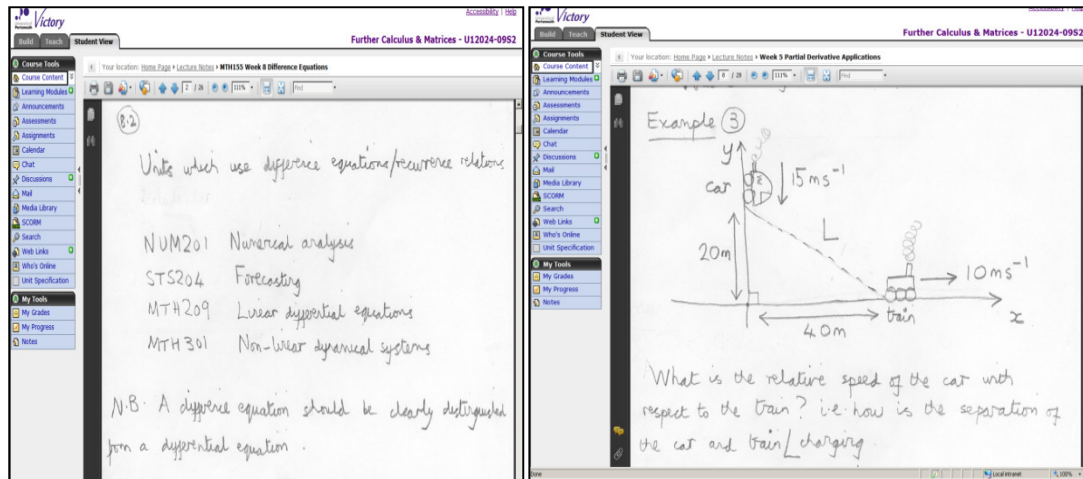 Victory
Accessibility | Help
Build Teach Student View
Further Calculus & Matrices - U12024-09S2
Course Tools
Course Content
Learning Modules
Announcements
Assessments
Assignments
Calendar
Chat
Discussions
Mail
Media Library
SCORM
Search
Web Links
Who's Online
Unit Specification
My Tools
My Grades
My Progress
Notes
Your location: Home Page › Lecture Notes › MTH155 Week 8 Difference Equations
2 / 28 111% Find
8.2
Units which use difference equations/recurrence relations
NUM201 Numerical analysis
STS204 Forecasting
MTH209 Linear differential equations
MTH301 Non-linear dynamical systems
N.B. A difference equation should be clearly distinguished
from a differential equation.
Victory
Accessibility | Help
Build Teach Student View
Further Calculus & Matrices - U12024-09S2
Course Tools
Course Content
Learning Modules
Announcements
Assessments
Assignments
Calendar
Chat
Discussions
Mail
Media Library
SCORM
Search
Web Links
Who's Online
Unit Specification
My Tools
My Grades
My Progress
Notes
Your location: Home Page › Lecture Notes › Week 5 Partial Derivative Applications
8 / 28 111% Find
Example 3
y
car
15ms⁻¹
L
20m
10ms⁻¹
train
x
40m
What is the relative speed of the car with
respect to the train? i.e. how is the separation of
the car and train L changing.
Done
Local intranet
100%